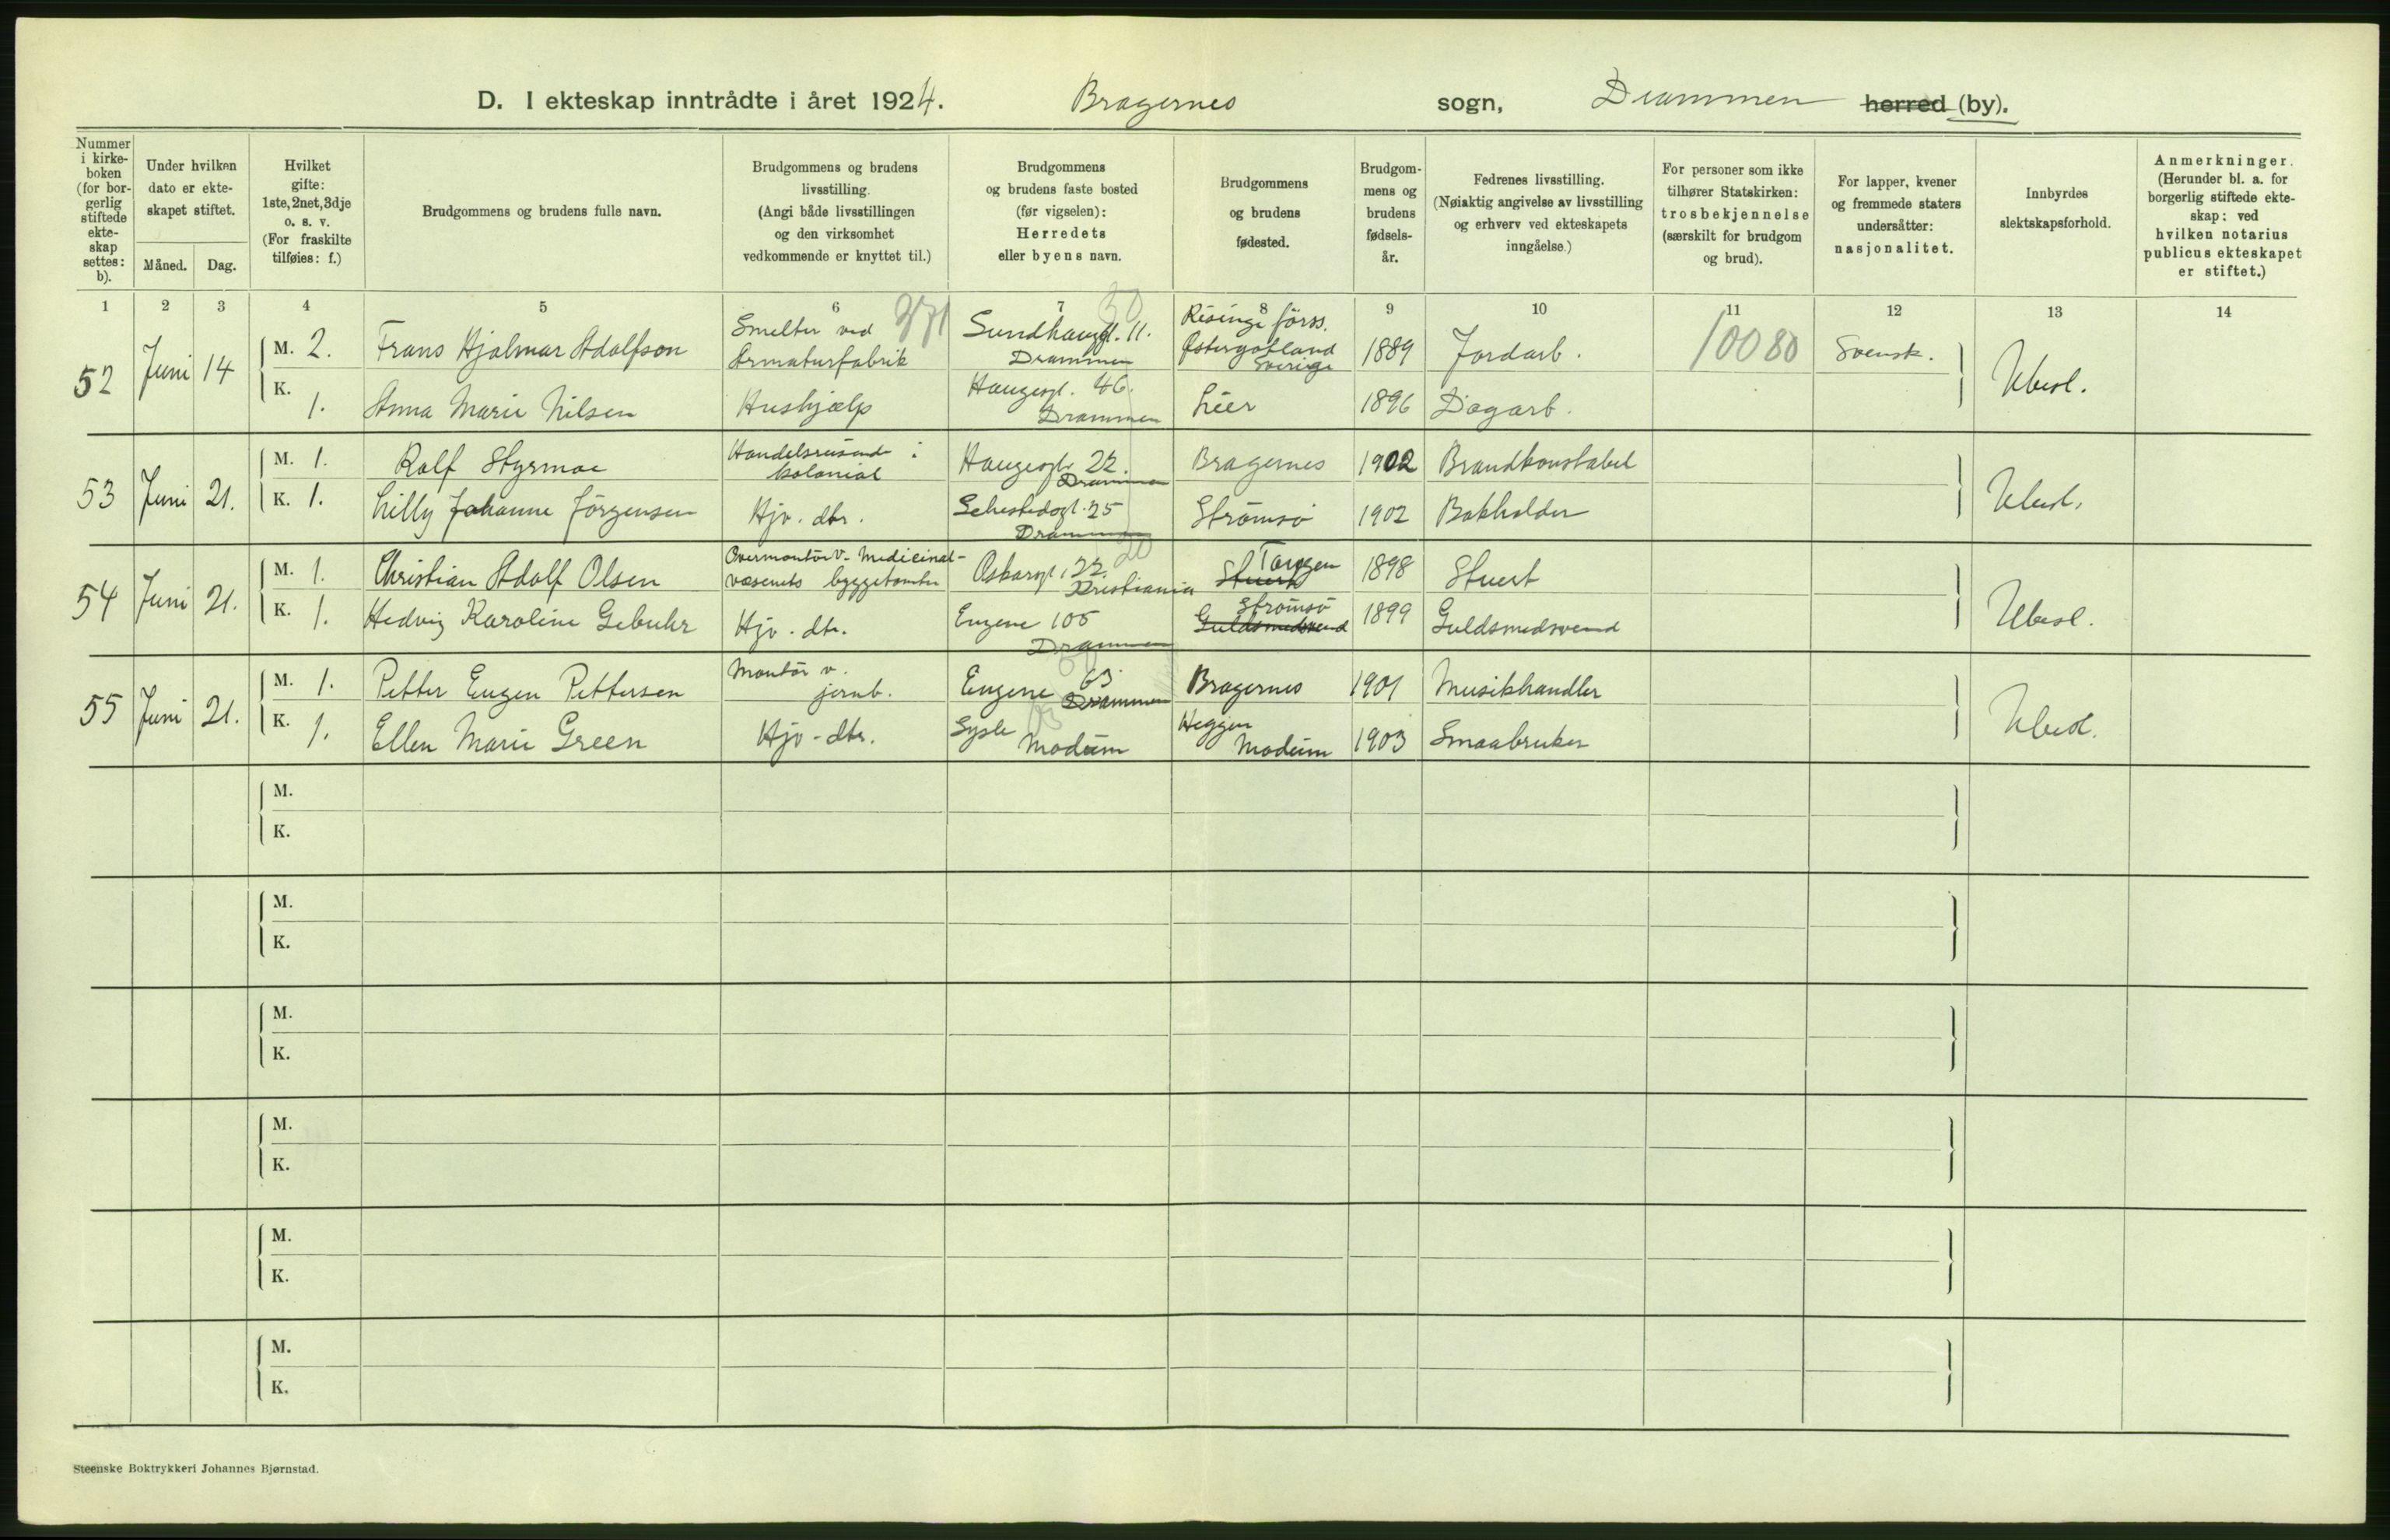 D. I ekteskap inntrådte i året 1924. Bragernes sogn, Drammen herred (by).
Nummer i kirke-boken (for bor-gerlig stiftede ekte-skap settes: b).
Under hvilken dato er ekte-skapet stiftet.
Måned. Dag.
Hvilket gifte: 1ste, 2net, 3dje o. s. v. (For fraskilte tilføies: f.)
Brudgommens og brudens fulle navn.
Brudgommens og brudens livsstilling. (Angi både livsstillingen og den virksomhet vedkommende er knyttet til.)
Brudgommens og brudens faste bosted (før vigselen): Herredets eller byens navn.
Brudgommens og brudens fødested.
Brudgom-mens og brudens fødsels-år.
Fedrenes livsstilling. (Nøiaktig angivelse av livsstilling og erhverv ved ekteskapets inngåelse.)
For personer som ikke tilhører Statskirken: trosbekjennelse (særskilt for brudgom og brud).
For lapper, kvener og fremmede staters undersåtter: nasjonalitet.
Innbyrdes slektskapsforhold.
Anmerkninger. (Herunder bl. a. for borgerlig stiftede ekte-skap: ved hvilken notarius publicus ekteskapet er stiftet.)
1 2 3 4 5 6 7 8 9 10 11 12 13 14
52 Juni 14 M. 2. Frans Hjalmar Adolfson Smelter ved Armaturfabrik 371 Sundhaugl. 11. Drammen 30 Risinge förss. Østergøtland Sverige 1889 Jordarb. 10080 Svensk. Ubesl.
K. 1. Anna Marie Nilsen Hushjælp Haugesgt. 46. Drammen Lier 1896 Dagarb.
53 Juni 21. M. 1. Rolf Styrmoe Handelsreisende i kolonial Haugesgt. 22. Drammen Bragernes 1902 Brandkonstabel Ubesl.
K. 1. Lilly Johanne Jörgensen Hjv. dtr. Schestedsgt. 25 Drammen Strømsø 1902 Bokholder
54 Juni 21. M. 1. Christian Adolf Olsen Overmontör v. Medicinal-væsenets byggetomter Oskarsgt. 22. Kristiania 20 Stuert Tangen 1898 Stuert Ubesl.
K. 1. Hedvig Karoline Gebuhr Hjv. dtr. Engene 105 Drammen Guldsmedsvend Strømsö 1899 Guldsmedsvend
55 Juni 21. M. 1. Petter Eugen Pettersen Montör v. jernb. Engene 63 Drammen Bragernes 1901 Musikhandler Ubesl.
K. 1. Ellen Marie Green Hjv-dtr. Sysle Modum Heggen Modum 1903 Smaabruker
M.
K.
M.
K.
M.
K.
M.
K.
M.
K.
M.
K.
Steenske Boktrykkeri Johannes Bjørnstad.